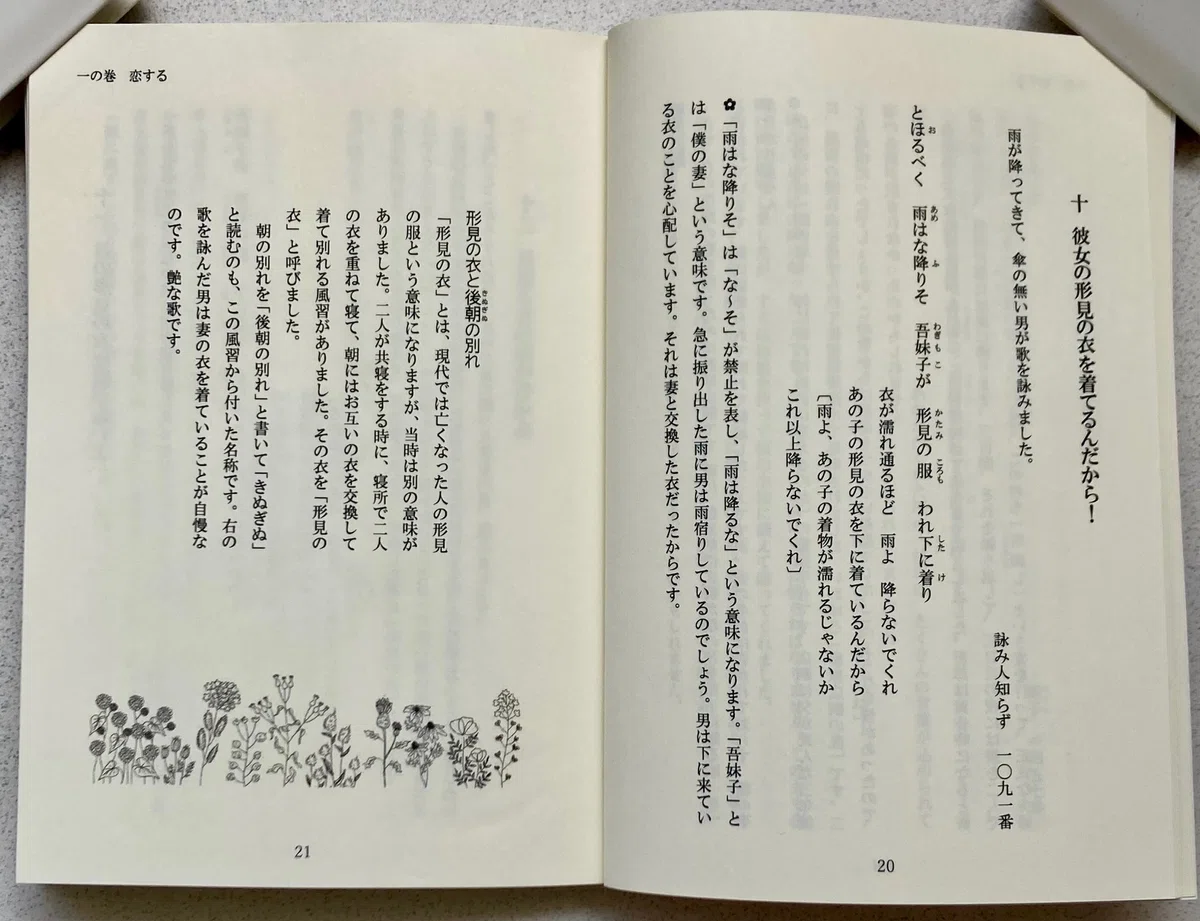 十　彼女の形見の衣を着てるんだから！
雨が降ってきて、傘の無い男が歌を詠みました。
詠み人知らず　一〇九一番
とほるべく　雨はな降りそ　吾妹子が　形見の服　われ下に着り
お　あめ　ふ　わぎもこ　かたみ　ころも　した　け
衣が濡れ通るほど　雨よ　降らないでくれ
あの子の形見の衣を下に着ているんだから
〔雨よ、あの子の着物が濡れるじゃないか
これ以上降らないでくれ〕
✿「雨はな降りそ」は「な〜そ」が禁止を表し、「雨は降るな」という意味になります。「吾妹子」と
は「僕の妻」という意味です。急に振り出した雨に男は雨宿りしているのでしょう。男は下に来てい
る衣のことを心配しています。それは妻と交換した衣だったからです。
20
一の巻　恋する
形見の衣と後朝の別れ
きぬぎぬ
「形見の衣」とは、現代では亡くなった人の形見
の服という意味になりますが、当時は別の意味が
ありました。二人が共寝をする時に、寝所で二人
の衣を重ねて寝て、朝にはお互いの衣を交換して
着て別れる風習がありました。その衣を「形見の
衣」と呼びました。
朝の別れを「後朝の別れ」と書いて「きぬぎぬ」
と読むのも、この風習から付いた名称です。右の
歌を詠んだ男は妻の衣を着ていることが自慢な
のです。艶な歌です。
21